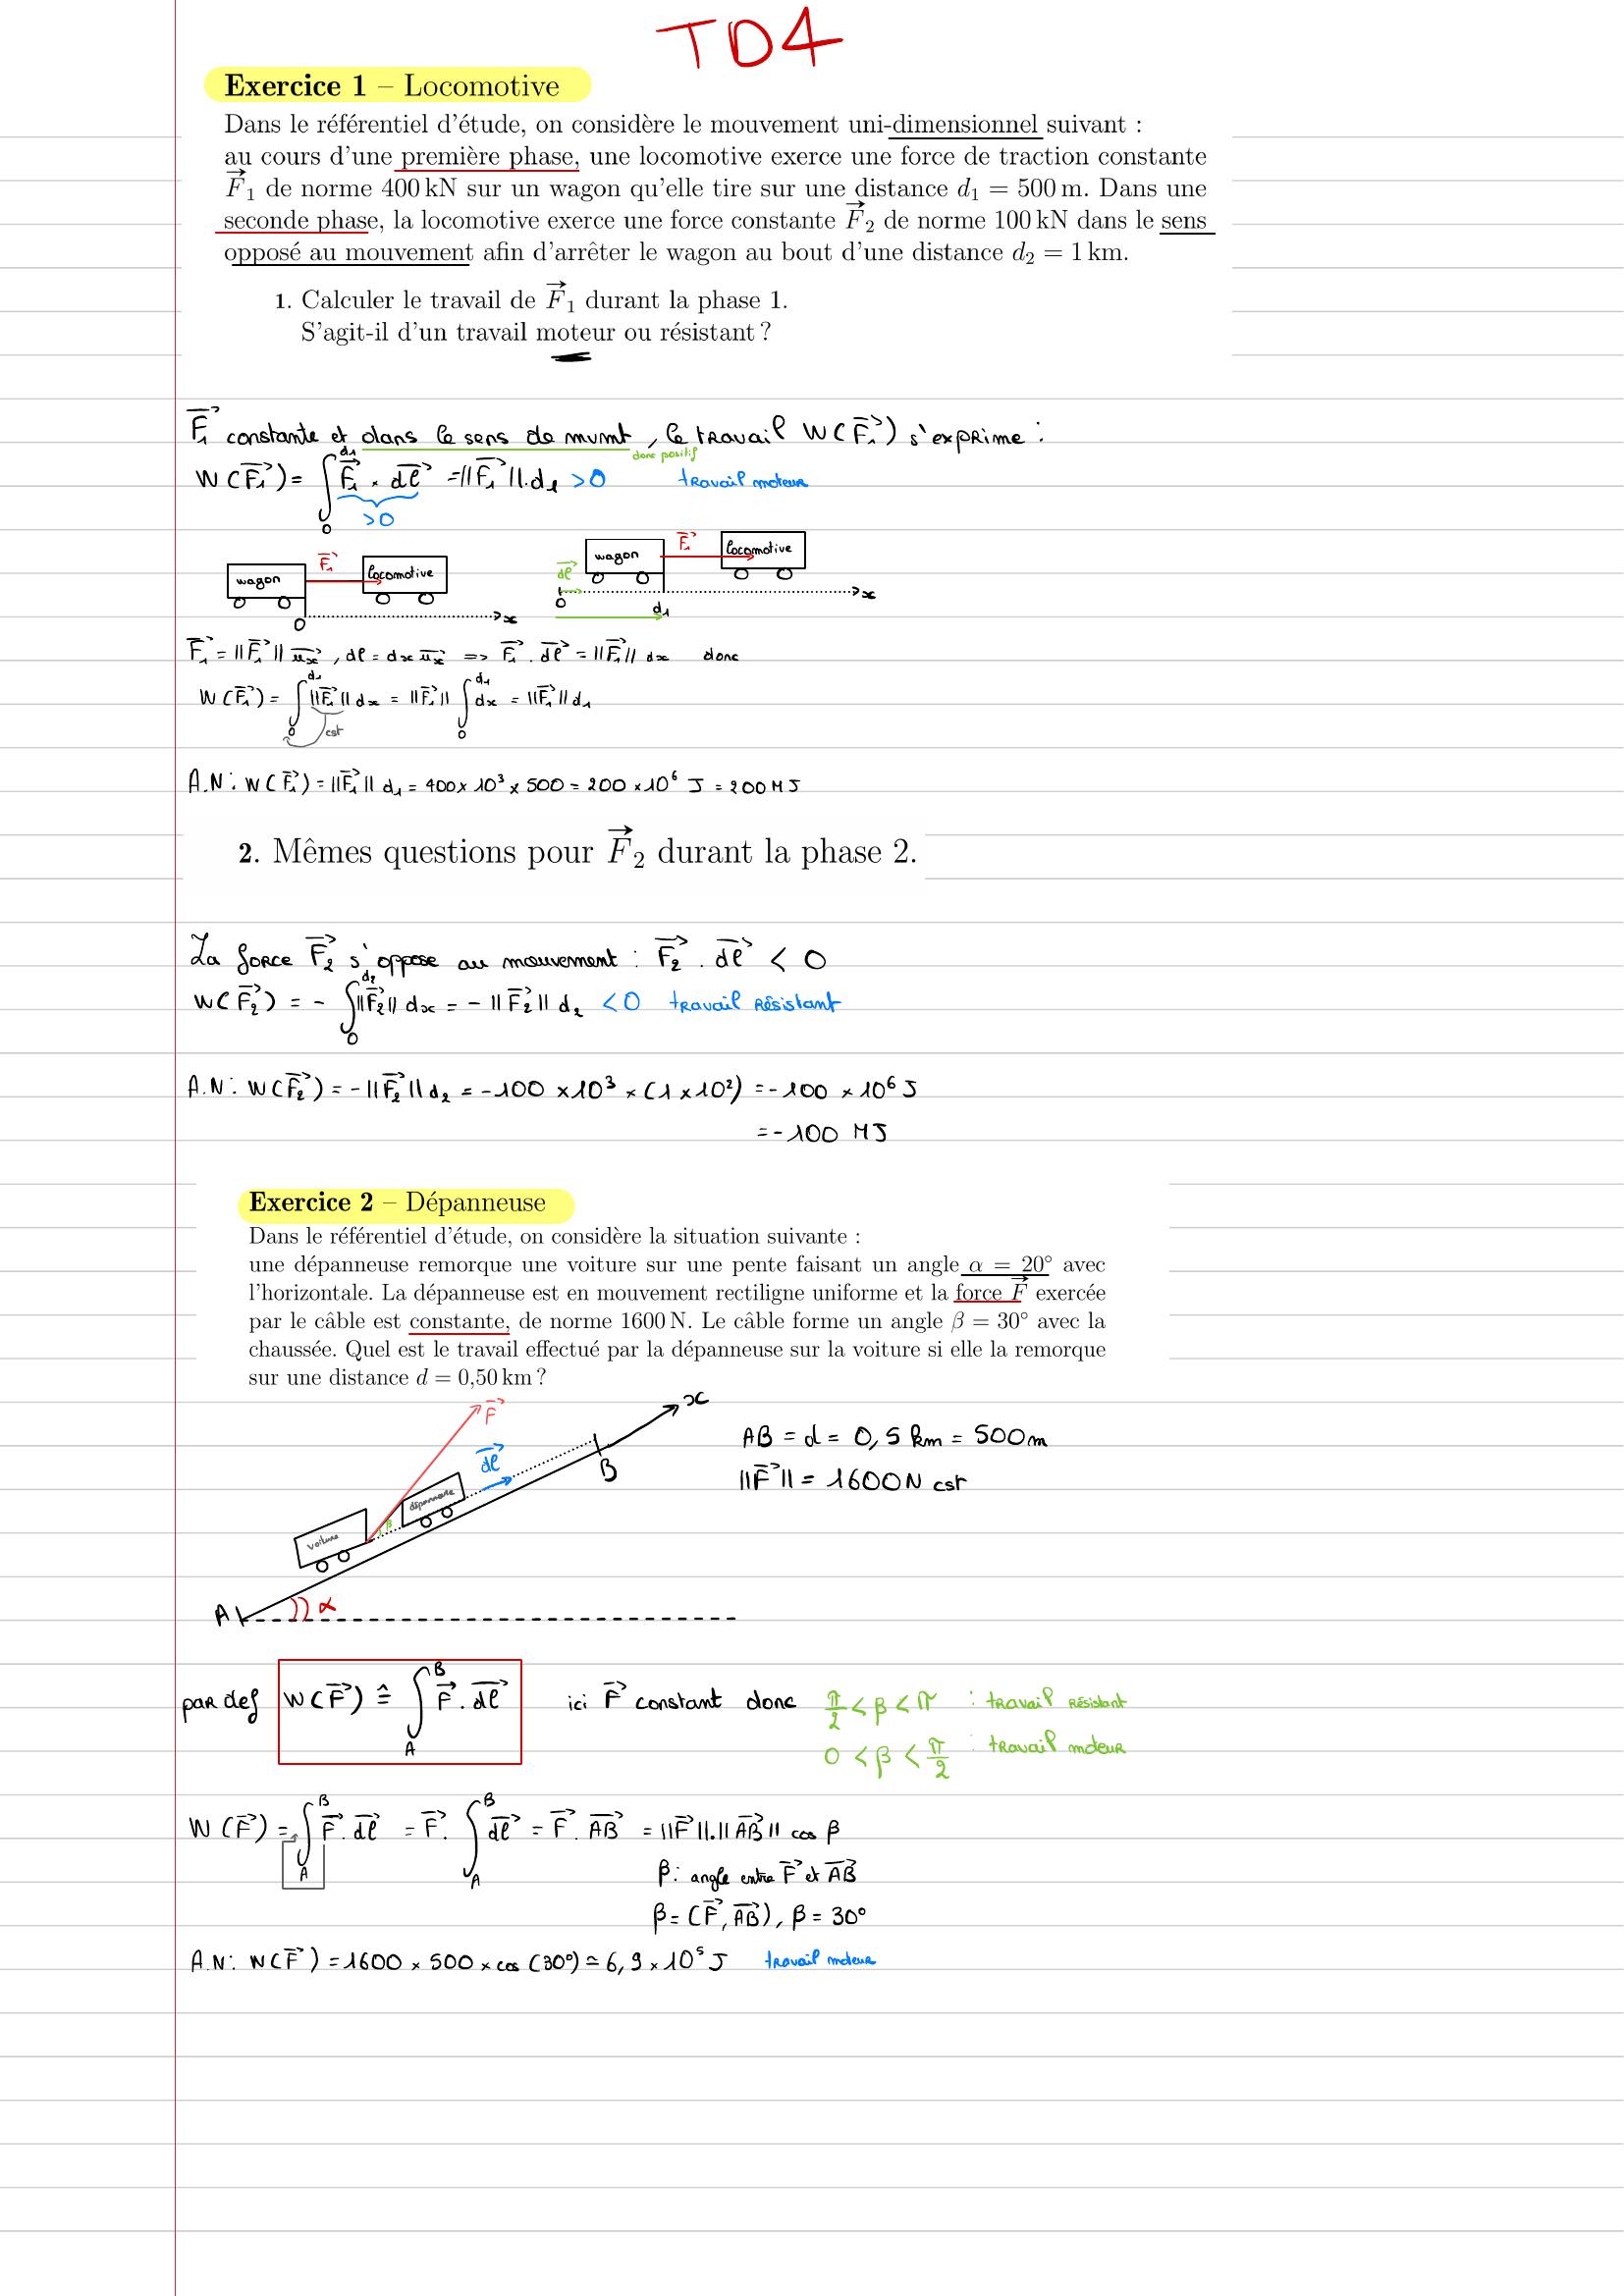 TD4
Exercice 1 – Locomotive
Dans le référentiel d'étude, on considère le mouvement uni-dimensionnel suivant :
au cours d'une première phase, une locomotive exerce une force de traction constante
F⃗₁ de norme 400 kN sur un wagon qu'elle tire sur une distance d₁ = 500 m. Dans une
seconde phase, la locomotive exerce une force constante F⃗₂ de norme 100 kN dans le sens
opposé au mouvement afin d'arrêter le wagon au bout d'une distance d₂ = 1 km.
1. Calculer le travail de F⃗₁ durant la phase 1.
S'agit-il d'un travail moteur ou résistant ?
F⃗₁ constante et dans le sens de mvmt, le travail W(F⃗₁) s'exprime :
donc positif
W(F⃗₁) = ∫₀^d₁ F⃗₁ · dl⃗ = ||F⃗₁||.d₁ > 0 travail moteur
> 0
wagon F⃗₁ locomotive wagon F⃗₁ locomotive
dl⃗
0 x 0 d₁ x
F⃗₁ = ||F⃗₁|| u⃗x , dl = dx u⃗x => F⃗₁ . dl⃗ = ||F⃗₁|| dx donc
W(F⃗₁) = ∫₀^d₁ ||F⃗₁|| dx = ||F⃗₁|| ∫₀^d₁ dx = ||F⃗₁|| d₁
cst
A.N : W(F⃗₁) = ||F⃗₁|| d₁ = 400 × 10³ × 500 = 200 × 10⁶ J = 200 MJ
2. Mêmes questions pour F⃗₂ durant la phase 2.
La force F⃗₂ s'oppose au mouvement : F⃗₂ . dl⃗ < 0
W(F⃗₂) = - ∫₀^d₂ ||F⃗₂|| dx = - ||F⃗₂|| d₂ < 0 travail résistant
A.N : W(F⃗₂) = -||F⃗₂|| d₂ = -100 × 10³ × (1 × 10²) = -100 × 10⁶ J
= -100 MJ
Exercice 2 – Dépanneuse
Dans le référentiel d'étude, on considère la situation suivante :
une dépanneuse remorque une voiture sur une pente faisant un angle α = 20° avec
l'horizontale. La dépanneuse est en mouvement rectiligne uniforme et la force F⃗ exercée
par le câble est constante, de norme 1600 N. Le câble forme un angle β = 30° avec la
chaussée. Quel est le travail effectué par la dépanneuse sur la voiture si elle la remorque
sur une distance d = 0,50 km ?
F⃗ x
dl⃗ B
AB = d = 0,5 km = 500m
||F⃗|| = 1600N cst
voiture β dépanneuse
A α
par def W(F⃗) ≙ ∫_A^B F⃗ . dl⃗ ici F⃗ constant donc π/2 < β < π : travail résistant
0 < β < π/2 : travail moteur
W(F⃗) = ∫_A^B F⃗ . dl⃗ = F⃗ . ∫_A^B dl⃗ = F⃗ . AB⃗ = ||F⃗||.||AB⃗|| cos β
β : angle entre F⃗ et AB⃗
β = (F⃗, AB⃗), β = 30°
A.N : W(F⃗) = 1600 × 500 × cos (30°) ≃ 6,9 × 10⁵ J travail moteur